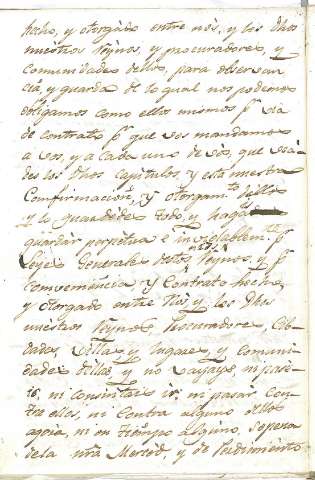 hecho, y otorgado entre nós, y los dhos
nuestros Reynos, y procuradores, y
Comunidades dellos, para observan
cia, y guarda de lo qual nos podemos
obligamos como ellos mismos pr via
de contrato pr que vos mandamos
a vos, y a cada uno de vós, que veá-
des los dhos Capitulos, y esta nuestra
Confirmación, y otorgamto dellos
y lo guardedes todo, y hagades
guardar perpetua é inviolablemte pr
Leyes Generales destos Reynos, y pr
Conveniencia, y Contrato hecho,
y otorgado entre Nós, y los dhos
nuestros Reynos, Procuradores, Cib-
dades, Villas y lugares, y comuni-
dades dellas, y no vayays, ni pasé-
is, ni consintais ir, ni pasar con-
tra ellos, ni contra alguno dellos
agora, ni en tiempo alguno, sopena
de la nra Merced, y de Perdimiento